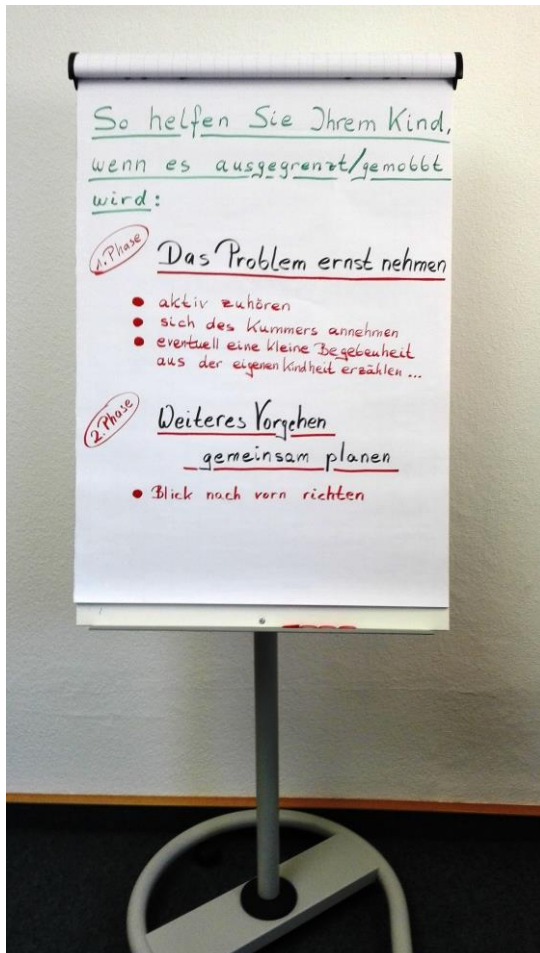 So helfen Sie Ihrem Kind,
wenn es ausgegrenzt/gemobbt
wird:
1. Phase
Das Problem ernst nehmen
• aktiv zuhören
• sich des Kummers annehmen
• eventuell eine kleine Begebenheit
aus der eigenen Kindheit erzählen ...
2. Phase
Weiteres Vorgehen
gemeinsam planen
• Blick nach vorn richten